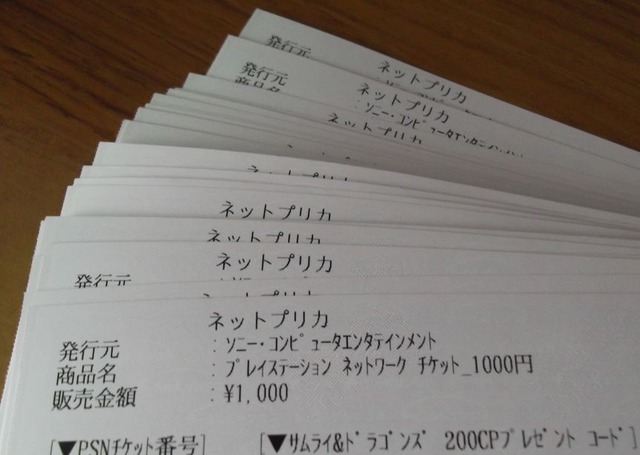 ネットプリカ
発行元
ネットプリカ
発行元 : ソニー・コンピュータエンタテインメント
ネットプリカ
ネットプリカ
ネットプリカ
ネットプリカ
ネットプリカ
発行元
ネットプリカ
発行元 : ソニー・コンピュータエンタテインメント
商品名 : プレイステーション ネットワーク チケット_1000円
販売金額 : ¥1,000
[▼PSNチケット番号] [▼サムライ&ドラゴンズ 200CPプレゼント コード]